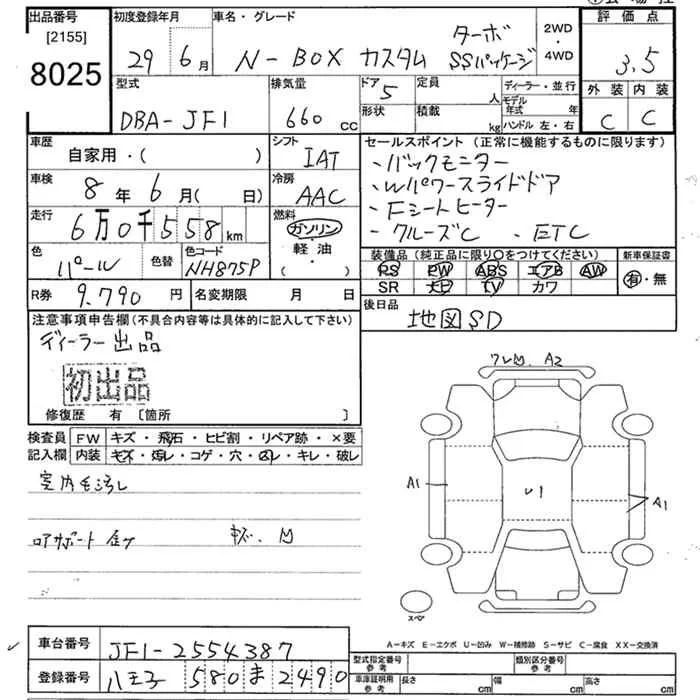 出品番号
[2155]
8025
初度登録年月
29 6月
車名・グレード
N-BOX カスタム ターボ SSパッケージ
2WD
・
4WD
評価点
3.5
外装 内装
C C
型式
DBA-JF1
排気量
660 cc
ドア
5
形状
定員
人
積載
kg
ディーラー・並行
モデル年式 年
ハンドル 左・右
車歴
自家用・( )
シフト
IAT
車検
8年 6月( 日)
冷房
AAC
走行
6万0千558km
燃料
ガソリン
軽・油
( )
色
パール
色替
色コード
NH875P
R券
9.790 円
名変期限 月 日
セールスポイント(正常に機能するものに限ります)
・バックモニター
・Wパワースライドドア
・Fシートヒーター
・クルーズC ・ETC
装備品(純正品に限り○をつけてください)
PS PW ABS エアB AW
SR ナビ TV カワ
新車保証書
有・無
後日品
地図SD
注意事項申告欄(不具合内容等は具体的に記入して下さい)
ディーラー出品
初出品
修復歴 有 〔箇所 〕
検査員
記入欄
FW キズ・飛石・ヒビ割・リペア跡・×要
内装 キズ・汚レ・コゲ・穴・凹レ・キレ・破レ
室内毛汚レ
ロアサポート
キズ、凹
A2
A1
U1
A1
スペア
A-キズ E-エクボ U-凹み W-補修跡 S-サビ C-腐食 XX-交換済
車台番号
JF1-2554387
登録番号
八王子 580 ま 2490
型式指定番号
参考
類別区分番号
参考
車庫証明用
参考
長さ cm
幅 cm
高さ cm